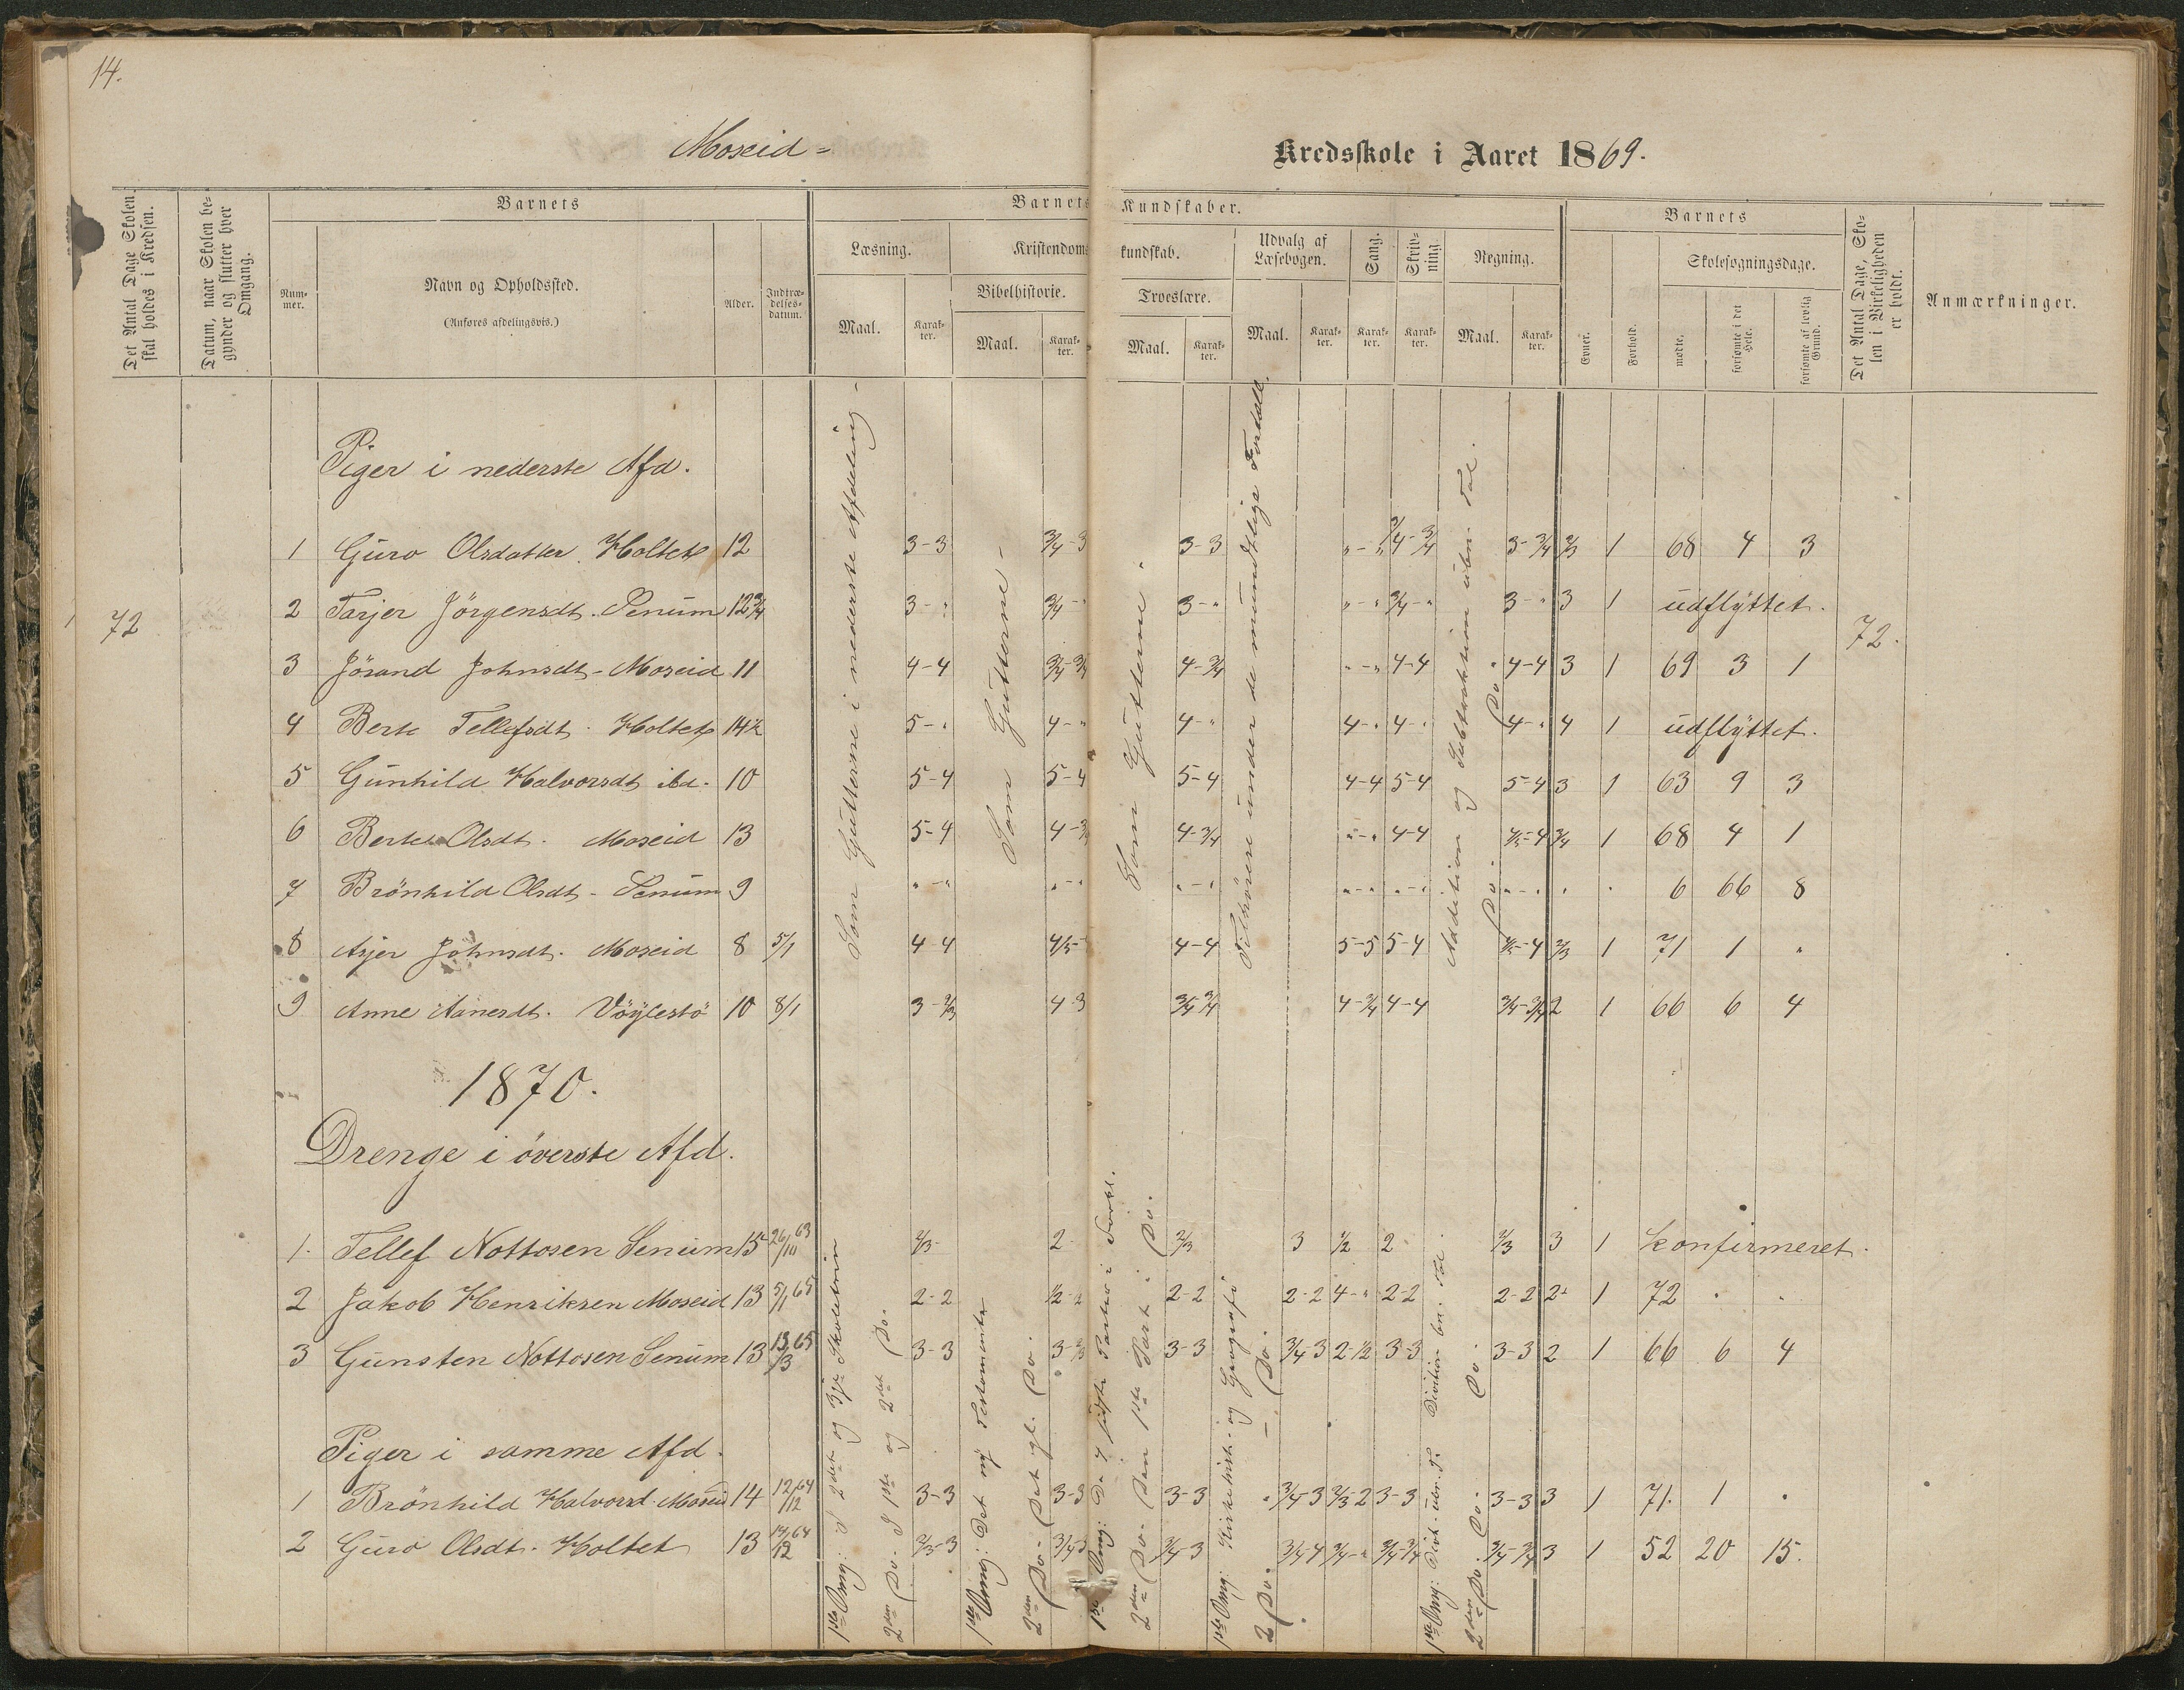 14.
Moseid -
Kredsskole i Aaret 1869.
Det Antal Dage Skolen skal holdes i Kredsen.
Datum, naar Skolen begynder og slutter hver Omgang.
Barnets
Barnets Kundskaber.
Barnets
Det Antal Dage, Skolen i Virkeligheden er holdt.
Anmærkninger.
Nummer.
Navn og Opholdssted.
(Anføres afdelingsvis.)
Alder.
Indtrædelsesdatum.
Læsning.
Kristendomskundskab.
Udvalg af Læsebogen.
Sang.
Skrivning.
Regning.
Evner.
Forhold.
Skolesøgningsdage.
Bibelhistorie.
Troeslære.
mødte.
forsømte i det Hele.
forsømte af lovlig Grund.
Maal. Karakter. Maal. Karakter. Maal. Karakter. Maal. Karakter. Karakter. Karakter. Maal. Karakter.
Piger i nederste Afd.
Som Gutterne i nederste Afdeling -
Som Gutterne -
Som Gutterne.
Tilhörere under de mundtlige Foredrag.
Addition og Subtraktion ubn. Tal.
Do. Do.
72
72.
1 Guro Olsdatter. Holtet 12 3-3 3/4-3 3-3 "-" 3/4-3/4 3-3/4 2/3 1 68 4 3
2 Tarjer Jörgensdt. Senum 12 3/4 3-" 3/4-" 3-" "-" 3/4-" 3-" 3 1 udflyttet.
3 Jörand Johnsdt - Moseid 11 4-4 3/4-3/4 4-3/4 "-" 4-4 4-4 3 1 69 3 1
4 Berte Tellefsdt. Holtet 14 1/2 5-" 4-" 4-" 4-" 4-" 4-" 4 1 udflyttet.
5 Gunhild Halvorsdt ibd. 10 5-4 5-4 5-4 4-4 5-4 5-4 3 1 63 9 3
6 Berte Olsdt. Moseid 13 5-4 4-3/4 4-3/4 "-" 4-4 4/5-4 3/4 1 68 4 1
7 Brönhild Olsdt - Senum 9 "-" "-" "-" "-" "-" "-" " " 6 66 8
8 Asjer Johnsdt. Moseid 8 5/1 4-4 4/5- 4-4 5-5 5-4 4/5-4 2/3 1 71 1 "
9 Anne Aanesdt. Vöylestö 10 8/1 3-2/3 4-3 3/4-3/4 4-3/4 4-4 3/4-3/4 2 1 66 6 4
1870.
Drenge i överste Afd.
1. Tellef Nottosen Senum 15 26/10 63 2/3- 2- 2/3 3 1/2 2 2/3 3 1 konfirmeret.
2 Jakob Henriksen Moseid 13 5/1 65 2-2 1/2-2 2-2 2-2 4-" 2-2 2-2 2 1 72 " "
3 Gunsten Nottosen Senum 13 13/3 65 3-3 3-2/3 3-3 3/4-3 2-1/2 3-3 3-3 2 1 66 6 4
Piger i samme Afd.
1 Brönhild Halvorsd. Moseid 14 12/12 64 3-3 3-3 3-3 3/4-3 2/3-2 3-3 3-3 3 1 71. 1 "
2 Guro Olsdt. Holtet 13 12/12 64 2/3-3 3/4-3 3/4-3 3/4-4 3/4-" 3/4-3/4 3/4-3/4 3 1 52 20 15.
1ste Omg: I 2det og 3je Skoletrin
2den Do - I 1ste og 2det Do.
1ste Omg: Det ny Testamente
2den Do - Det gl. Do.
1ste Omg: De sidste Parter i Forkl.
2den Do - Den 1ste Part i Do.
1ste Omg: Kirkehist. og Geografi
2 Do. - Do.
1ste Omg: Divis. ubn. T. Division bn. Tal.
2den Do. Do. Do.